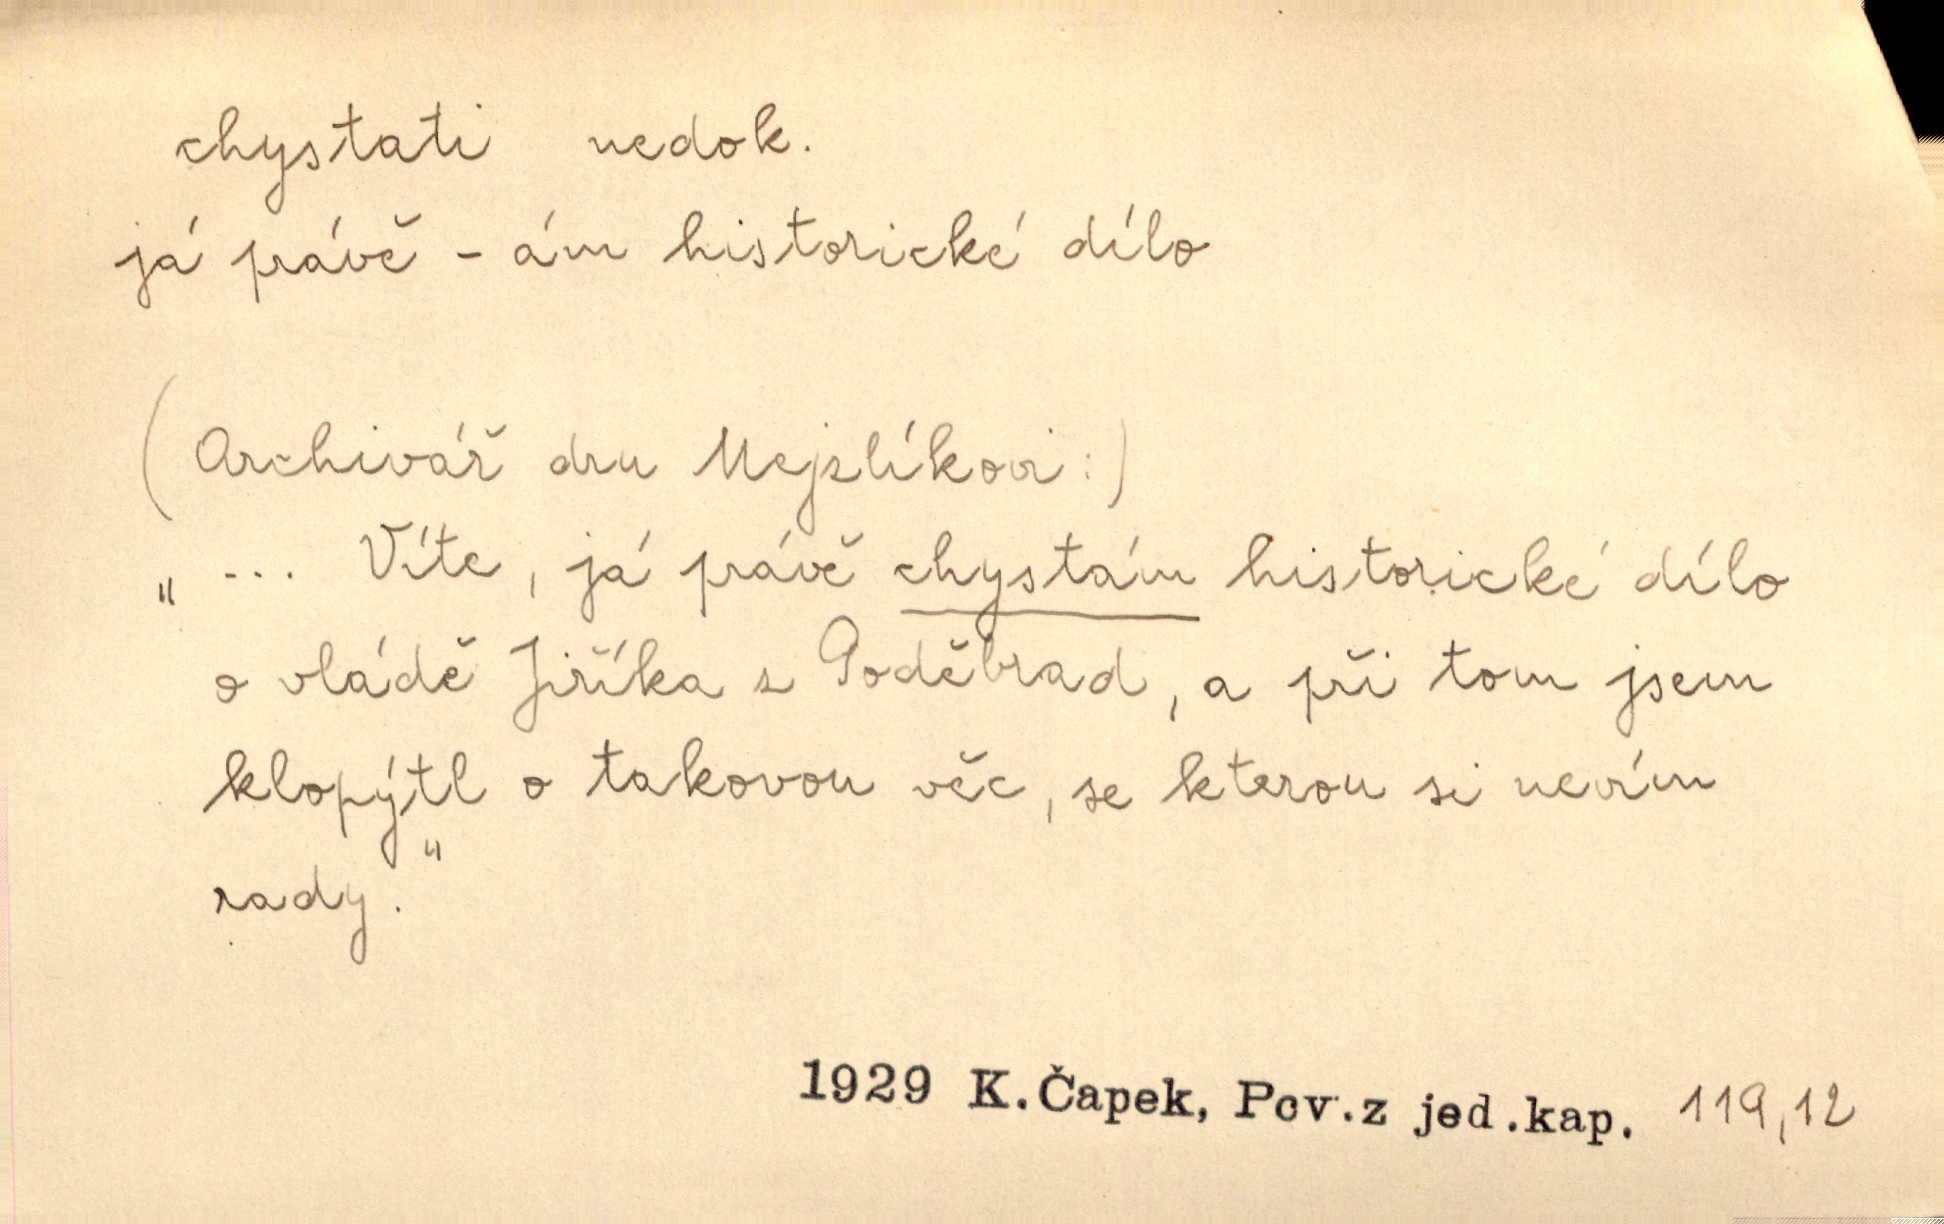 chystati nedok.
já právě - ám historické dílo
(Archivář dru Mejzlíkovi:)
„ ... Víte, já právě chystám historické dílo
o vládě Jiříka z Poděbrad, a při tom jsem
klopýtl o takovou věc, se kterou si nevím
rady."
1929 K.Čapek, Pov.z jed.kap. 119,12